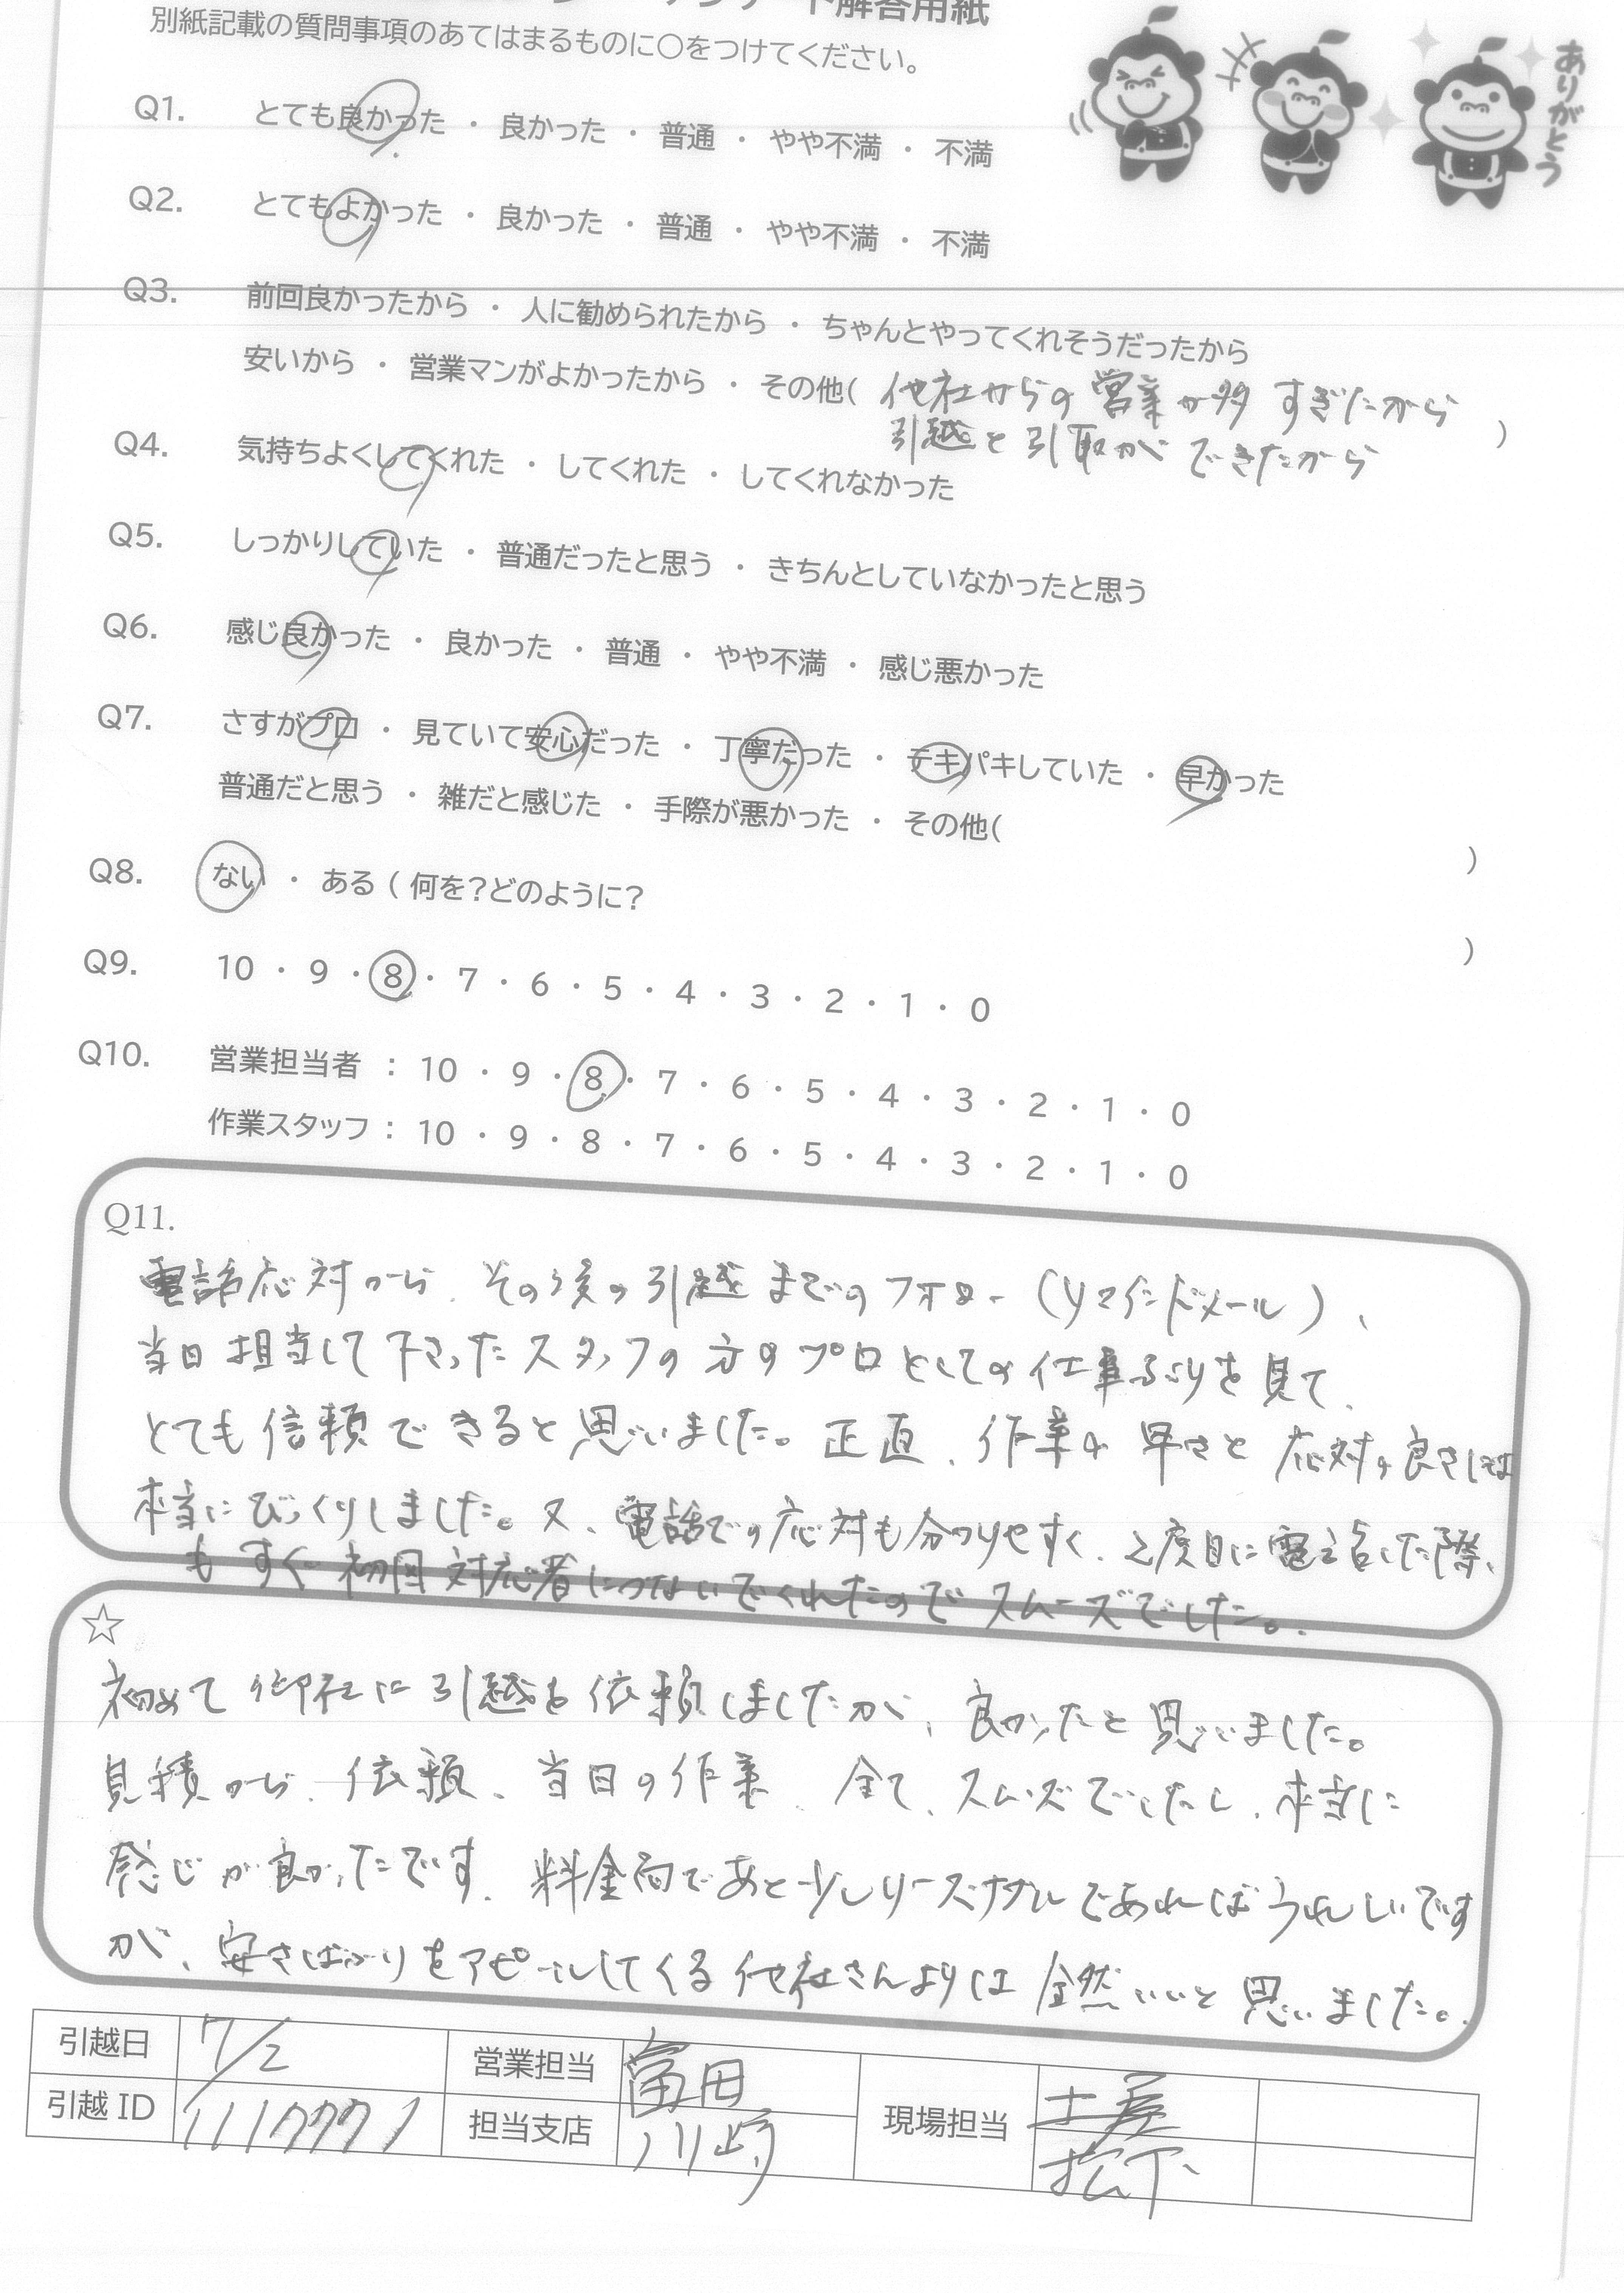 ト解答用紙
別紙記載の質問事項のあてはまるものに○をつけてください。
ありがとう
Q1. とても良かった ・ 良かった ・ 普通 ・ やや不満 ・ 不満
Q2. とてもよかった ・ 良かった ・ 普通 ・ やや不満 ・ 不満
Q3. 前回良かったから ・ 人に勧められたから ・ ちゃんとやってくれそうだったから
安いから ・ 営業マンがよかったから ・ その他( 他社からの営業が多すぎたから
引越と引取ができたから )
Q4. 気持ちよくしてくれた ・ してくれた ・ してくれなかった
Q5. しっかりしていた ・ 普通だったと思う ・ きちんとしていなかったと思う
Q6. 感じ良かった ・ 良かった ・ 普通 ・ やや不満 ・ 感じ悪かった
Q7. さすがプロ ・ 見ていて安心だった ・ 丁寧だった ・ テキパキしていた ・ 早かった
普通だと思う ・ 雑だと感じた ・ 手際が悪かった ・ その他( )
Q8. ない ・ ある ( 何を?どのように? )
Q9. 10 ・ 9 ・ 8 ・ 7 ・ 6 ・ 5 ・ 4 ・ 3 ・ 2 ・ 1 ・ 0
Q10. 営業担当者 : 10 ・ 9 ・ 8 ・ 7 ・ 6 ・ 5 ・ 4 ・ 3 ・ 2 ・ 1 ・ 0
作業スタッフ : 10 ・ 9 ・ 8 ・ 7 ・ 6 ・ 5 ・ 4 ・ 3 ・ 2 ・ 1 ・ 0
Q11.
電話応対から、その後の引越までのフォロー(リマインドメール)、
当日担当して下さったスタッフの方のプロとしての仕事ぶりを見て、
とても信頼できると思いました。正直、作業の早さと応対の良さには
本当にびっくりしました。又、電話での応対も分かりやすく、2度目に電話した際、
もすぐ初回対応者につないでくれたのでスムーズでした。
☆
初めて御社に引越を依頼しましたが、良かったと思いました。
見積から、依頼、当日の作業、全て、スムーズでしたし、本当に
感じが良かったです。料金面であと少しリーズナブルであればうれしいです
が、安さばかりをアピールしてくる他社さんよりは全然いいと思いました。
引越日 7/2 営業担当 富田 現場担当 土屋
引越 ID 1117771 担当支店 川崎 松下